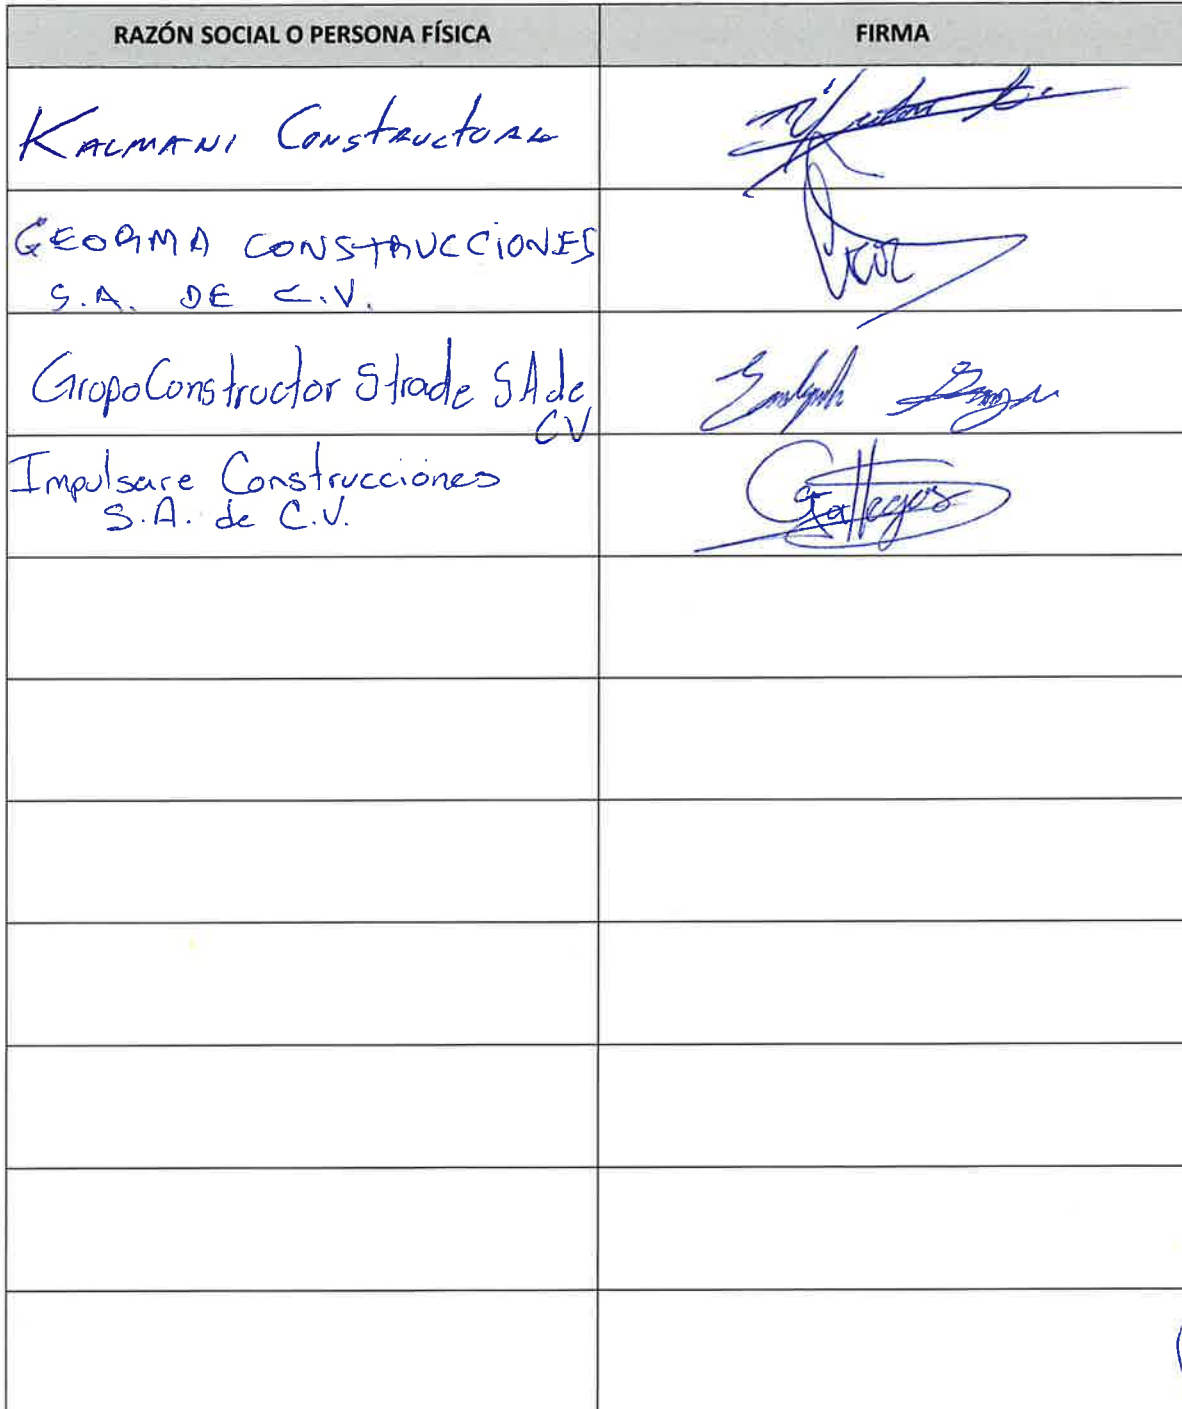 RAZÓN SOCIAL O PERSONA FÍSICA
FIRMA
KALMANI CONSTRUCTORA
GEORMA CONSTRUCCIONES
S.A. DE C.V.
Grupo Constructor Strade SA de
CV
Impulsare Construcciones
S.A. de C.V.
Gallegos